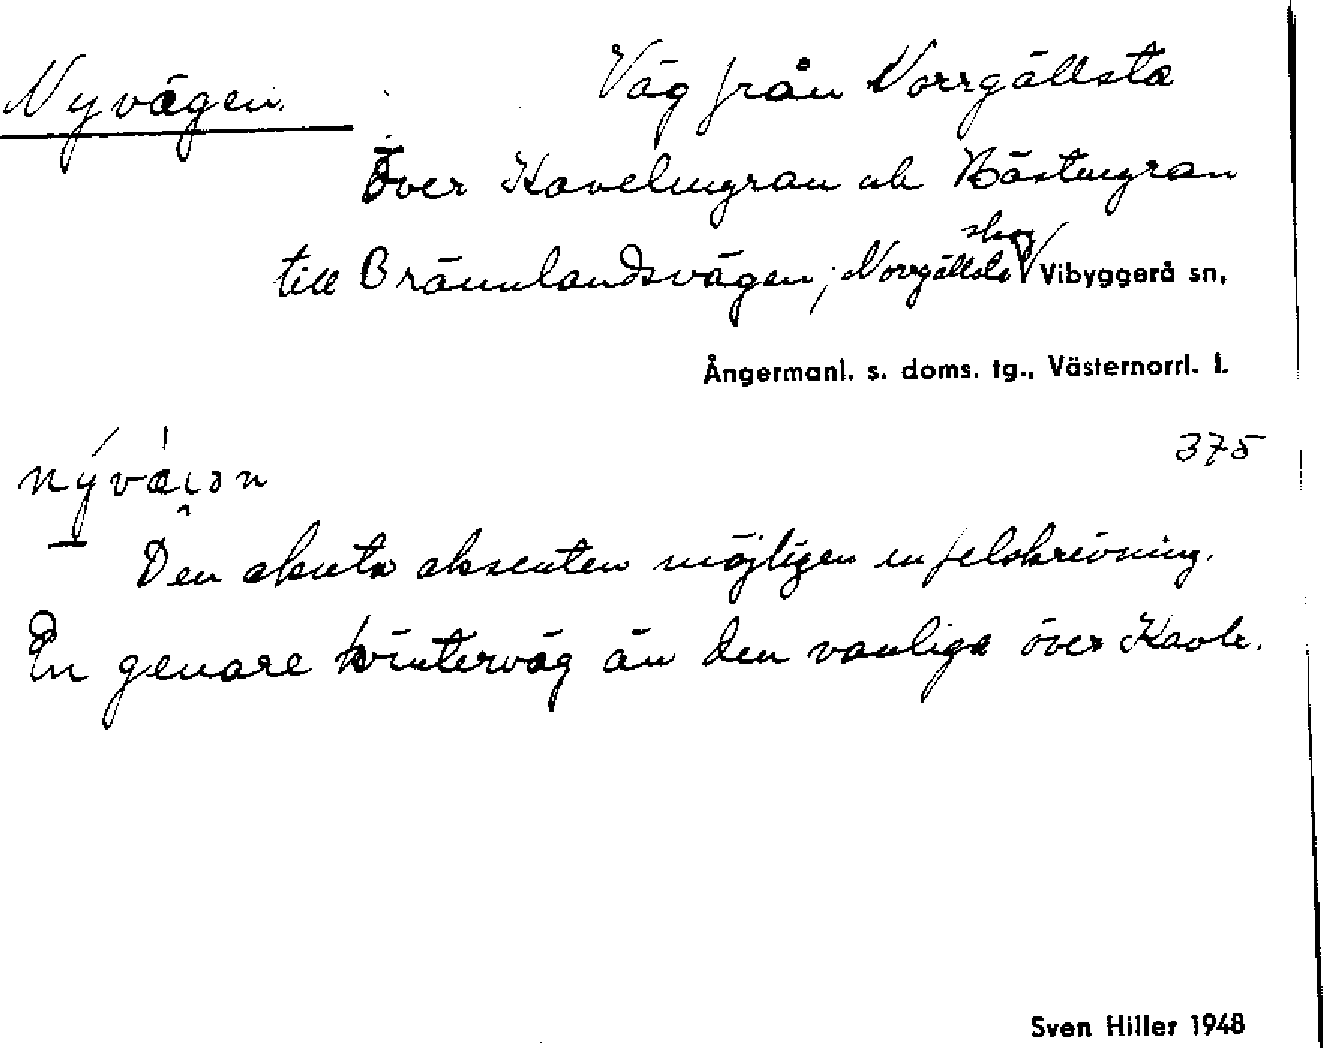 Nyvägen. Väg från Norrgällsta
över Kavelmyran och Bästmyran
till Brännlandsvägen, Norrgällsta skog Vibyggerå sn,
Ångermanl. s. doms. tg., Västernorrl. l.
375
Den akuta aksenten möjligen en felskrivning.
En genare vinterväg än den vanliga över
Sven Hiller 1948